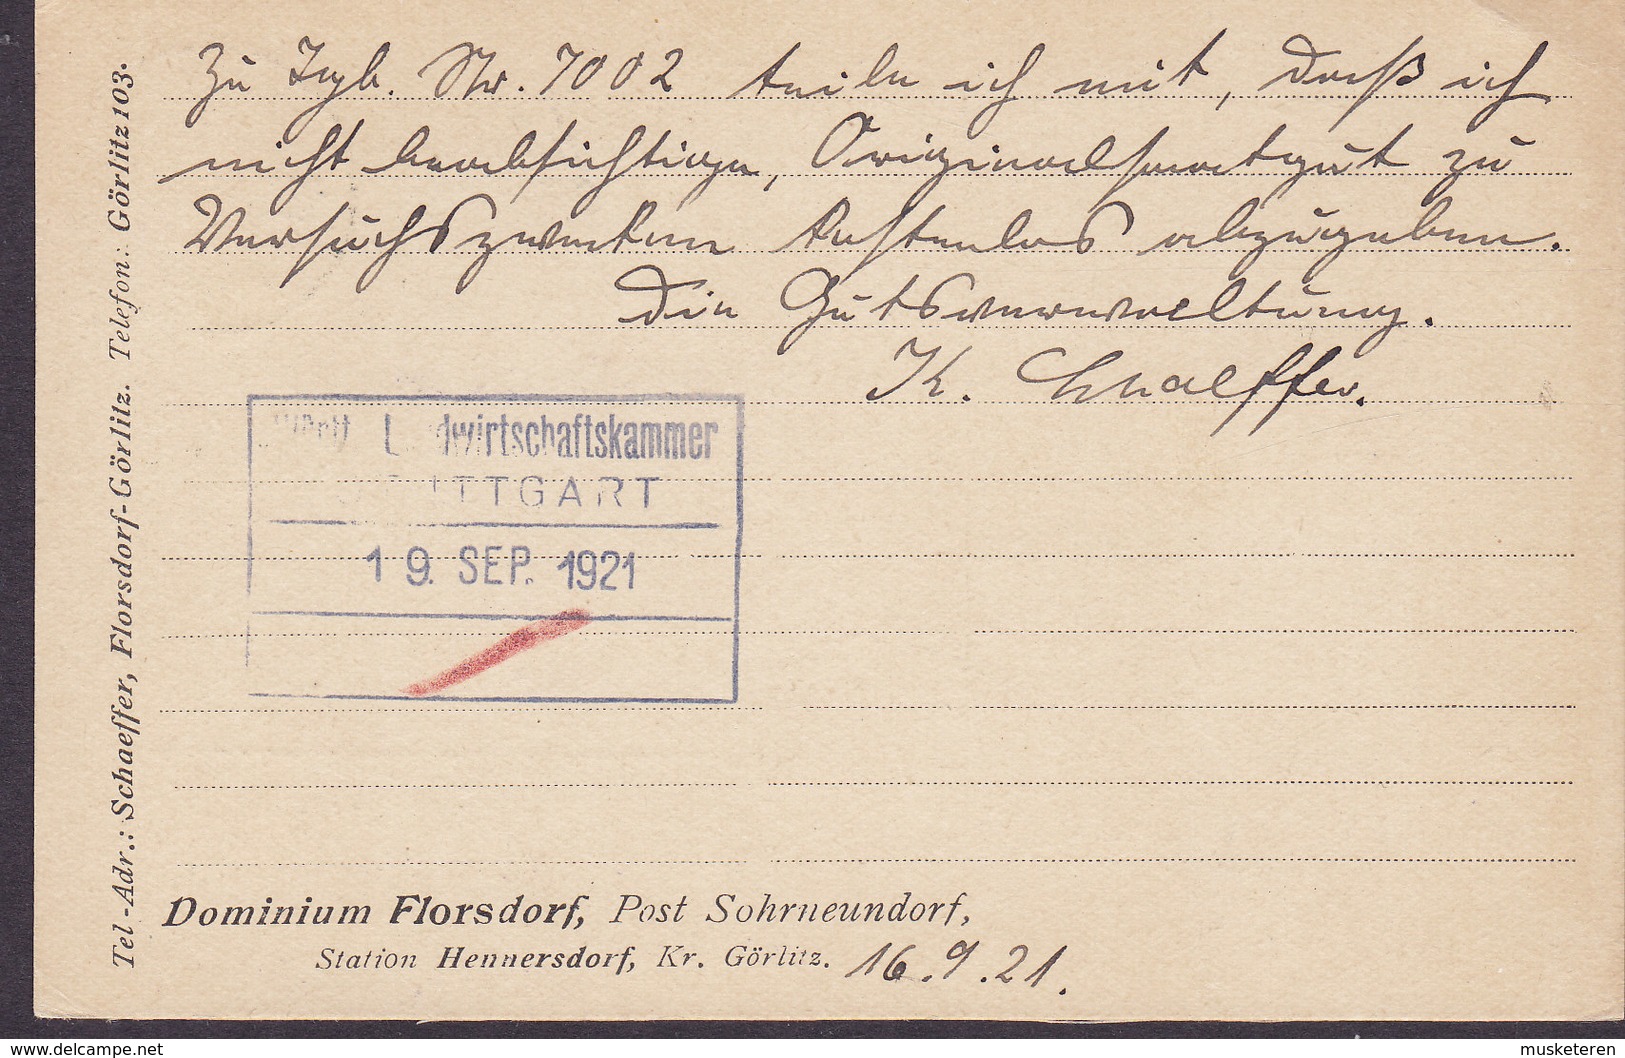 Zu Tgb. Nr. 7002 teile ich mit, daß ich
nicht beabsichtige, Originalsaatgut zu
Versuchszwecken kostenlos abzugeben.
Die Gutsverwaltung.
K. Schaeffer.
Württ. Landwirtschaftskammer
STUTTGART
19. SEP. 1921
Dominium Florsdorf, Post Sohrneundorf,
Station Hennersdorf, Kr. Görlitz. 16.9.21.
Tel.-Adr.: Schaeffer, Florsdorf-Görlitz. Telefon: Görlitz 103.
www.delcampe.net
musketeren